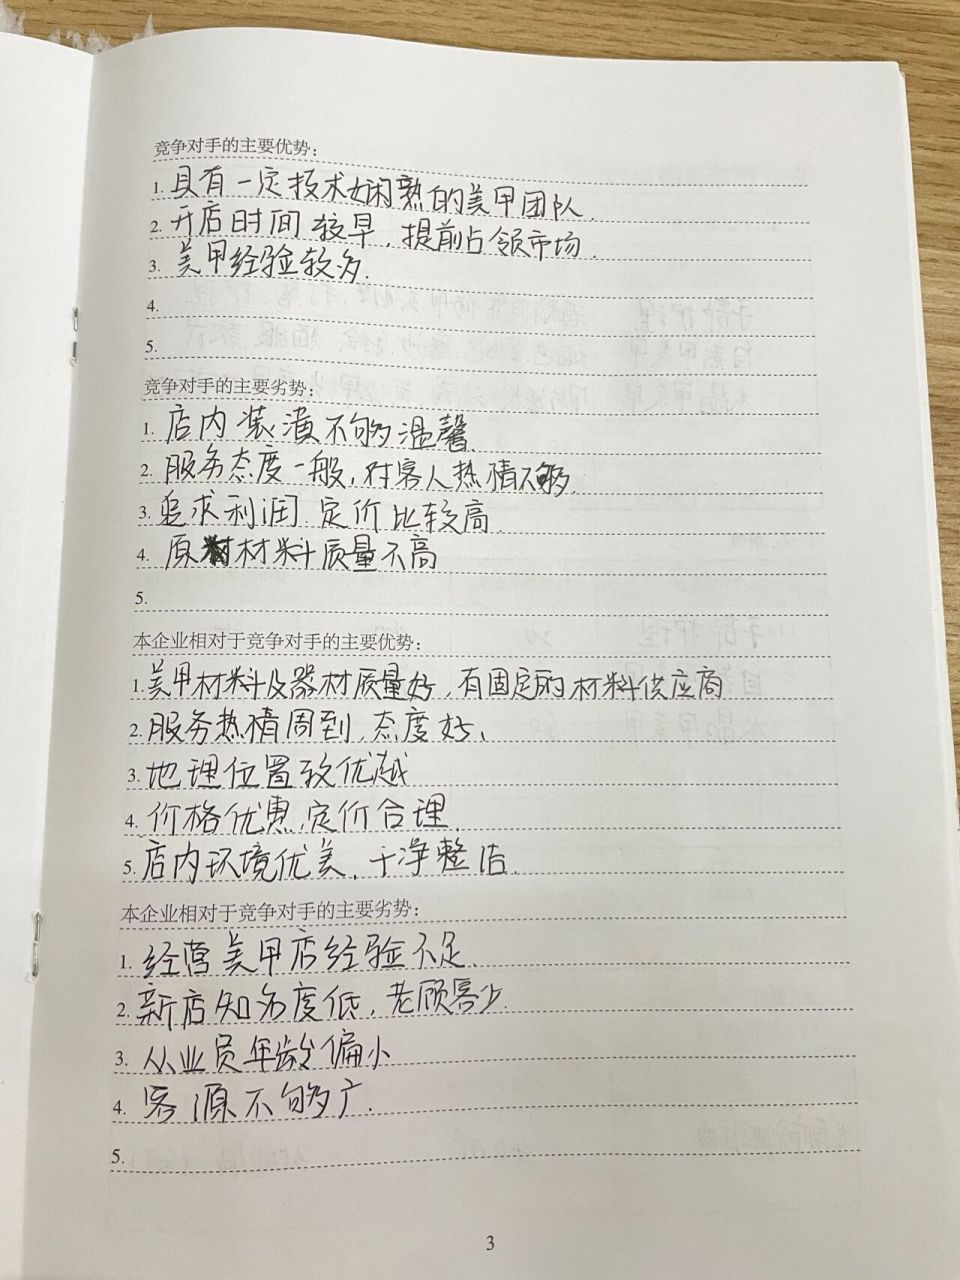 竞争对手的主要优势：
1. 具有一定技术娴熟的美甲团队.
2. 开店时间较早，提前占领市场.
3. 美甲经验较多.
4.
5.
竞争对手的主要劣势：
1. 店内装潢不够温馨.
2. 服务态度一般，对客人热情不够.
3. 追求利润.定价比较高.
4. 原材料质量不高
5.
本企业相对于竞争对手的主要优势：
1. 美甲材料及器材质量好，有固定的材料供应商
2. 服务热情周到.态度好、
3. 地理位置较优越
4. 价格优惠.定价合理.
5. 店内环境优美，干净整洁.
本企业相对于竞争对手的主要劣势：
1. 经营美甲店经验不足.
2. 新店知名度低，老顾客少.
3. 从业员年龄偏小
4. 客源不够广.
5.
3